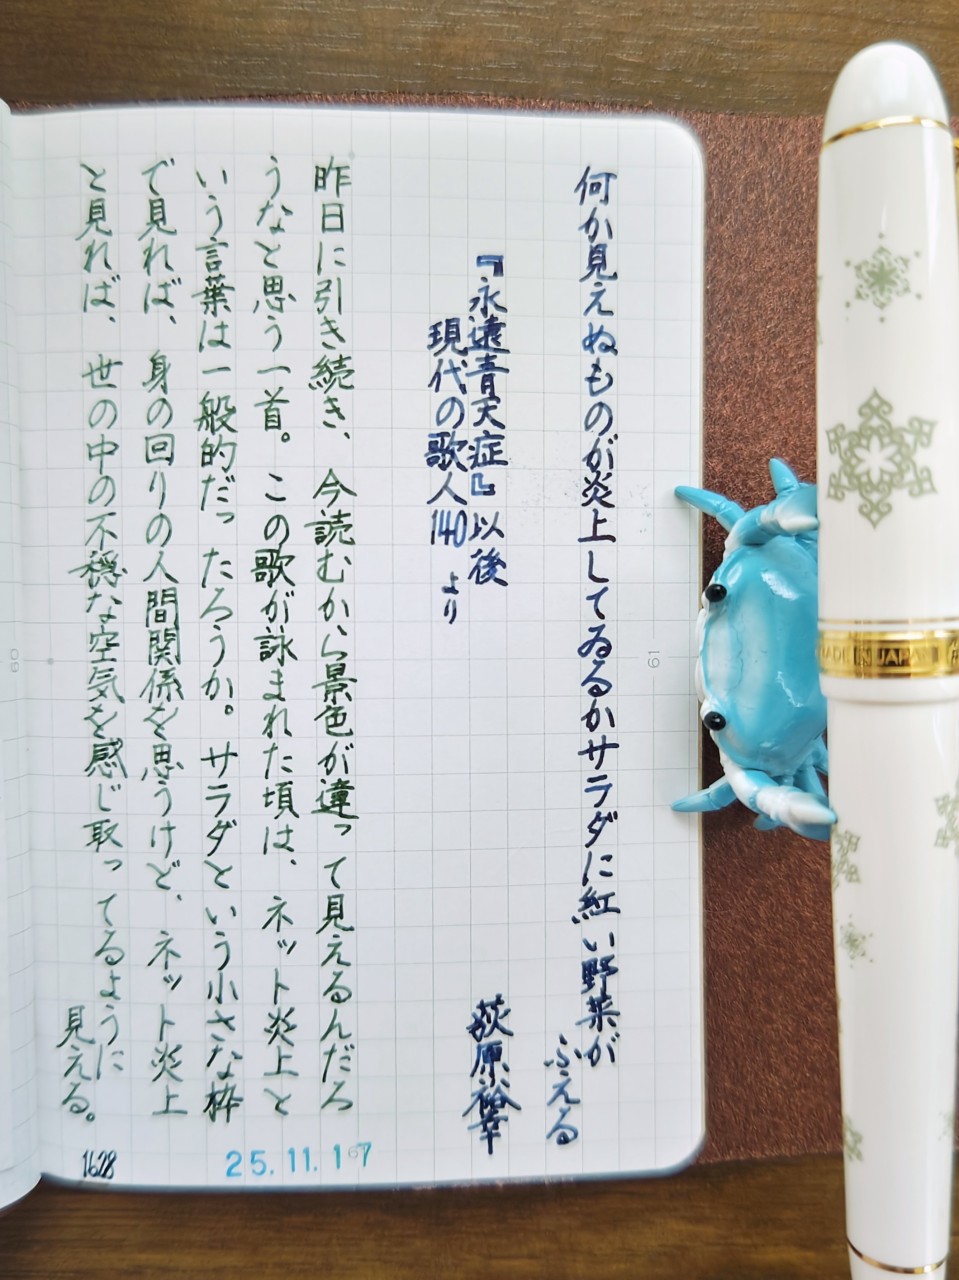 何か見えぬものが炎上してゐるかサラダに紅い野菜が
ふえる
『永遠青天症』以後
荻原裕幸
現代の歌人140 より
昨日に引き続き、今読むから景色が違って見えるんだろ
うなと思う一首。この歌が詠まれた頃は、ネット炎上と
いう言葉は一般的だったろうか。サラダという小さな枠
で見れば、身の回りの人間関係を思うけど、ネット炎上
と見れば、世の中の不穏な空気を感じ取ってるように
見える。
25.11.17
1628
61
60
MADE IN JAPAN